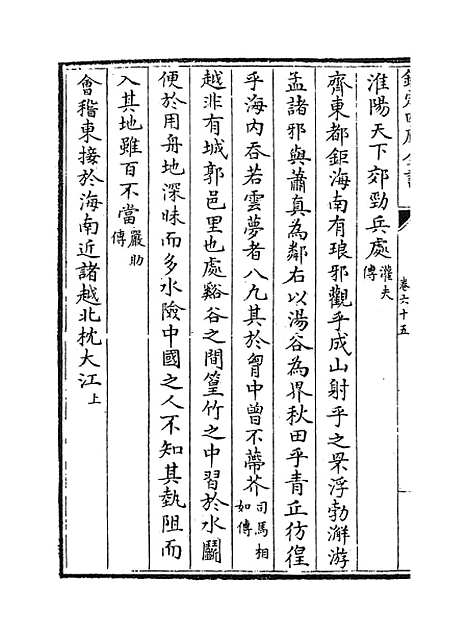 欽定四庫全書
卷六十五
淮陽天下郊勁兵處灌夫傳
齊東都鉅海南有琅邪觀乎成山射乎之罘浮勃澥游
孟諸邪與肅真為鄰右以湯谷為界秋田乎青丘彷徨
乎海内吞若雲夢者八九其於胷中曽不蔕芥司馬相如傳
越非有城郭邑里也處谿谷之間篁竹之中習於水鬭
便於用舟地深昧而多水險中國之人不知其埶阻而
入其地雖百不當嚴助傳
會稽東接於海南近諸越北枕大江上